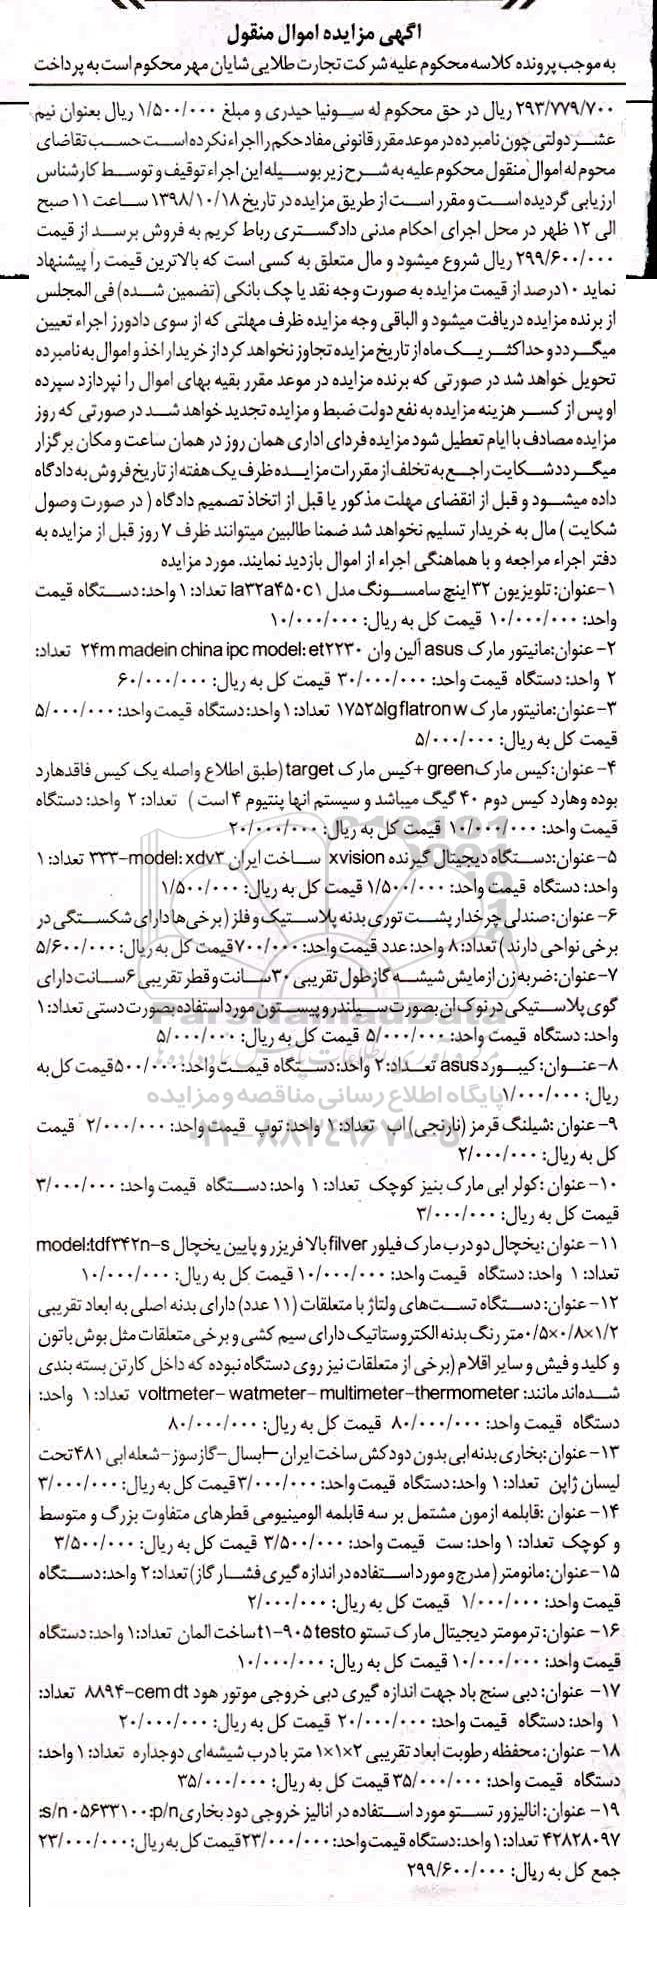 آگهی مزایده اموال منقول
به موجب پرونده کلاسه محکوم علیه شرکت تجارت طلایی شایان مهر محکوم است به پرداخت
۲۹۳/۷۷۹/۷۰۰ ریال در حق محکوم له سونیا حیدری و مبلغ ۱/۵۰۰/۰۰۰ ریال بعنوان نیم
عشر دولتی چون نامبرده در موعد مقرر قانونی مفاد حکم را اجرا نکرده است حسب تقاضای
محوم له اموال منقول محکوم علیه به شرح زیر بوسیله این اجراء توقیف و توسط کارشناس
ارزیابی گردیده است و مقرر است از طریق مزایده در تاریخ ۱۳۹۸/۱۰/۱۸ ساعت ۱۱ صبح
الی ۱۲ ظهر در محل اجرای احکام مدنی دادگستری رباط کریم به فروش برسد از قیمت
۲۹۹/۶۰۰/۰۰۰ ریال شروع میشود و مال متعلق به کسی است که بالاترین قیمت را پیشنهاد
نماید ۱۰درصد از قیمت مزایده به صورت وجه نقد یا چک بانکی (تضمین شده) فی المجلس
از برنده مزایده دریافت میشود و الباقی وجه مزایده ظرف مهلتی که از سوی دادورز اجراء تعیین
میگردد و حداکثر یک ماه از تاریخ مزایده تجاوز نخواهد کرد از خریدار اخذ و اموال به نامبرده
تحویل خواهد شد در صورتی که برنده مزایده در موعد مقرر بقیه بهای اموال را نپردازد سپرده
او پس از کسر هزینه مزایده به نفع دولت ضبط و مزایده تجدید خواهد شد در صورتی که روز
مزایده مصادف با ایام تعطیل شود مزایده فردای اداری همان روز در همان ساعت و مکان برگزار
میگردد شکایت راجع به تخلف از مقررات مزایده ظرف یک هفته از تاریخ فروش به دادگاه
داده میشود و قبل از انقضای مهلت مذکور یا قبل از اتخاذ تصمیم دادگاه ( در صورت وصول
شکایت ) مال به خریدار تسلیم نخواهد شد ضمنا طالبین میتوانند ظرف ۷ روز قبل از مزایده به
دفتر اجراء مراجعه و با هماهنگی اجراء از اموال بازدید نمایند. مورد مزایده
۱-عنوان: تلویزیون ۳۲اینچ سامسونگ مدل la۳۲a۴۵۰c۱ تعداد: ۱ واحد: دستگاه قیمت
واحد: ۱۰/۰۰۰/۰۰۰ قیمت کل به ریال: ۱۰/۰۰۰/۰۰۰
۲- عنوان:مانیتور مارک asus آلین وان ۲۴m madein china ipc model: et۲۲۳۰ تعداد:
۲ واحد: دستگاه قیمت واحد: ۳۰/۰۰۰/۰۰۰ قیمت کل به ریال: ۶۰/۰۰۰/۰۰۰
۳-عنوان:مانیتور مارک ۱۷۵۲۵lg flatron w تعداد: ۱ واحد: دستگاه قیمت واحد: ۵/۰۰۰/۰۰۰
قیمت کل به ریال: ۵/۰۰۰/۰۰۰
۴- عنوان:کیس مارک green+کیس مارک target (طبق اطلاع واصله یک کیس فاقدهارد
بوده وهارد کیس دوم ۴۰ گیگ میباشد و سیستم انها پنتیوم ۴ است ) تعداد: ۲ واحد: دستگاه
قیمت واحد: ۱۰/۰۰۰/۰۰۰ قیمت کل به ریال: ۲۰/۰۰۰/۰۰۰
۵-عنوان:دستگاه دیجیتال گیرنده xvision ساخت ایران ۳۳۳-model: xdv۳ تعداد: ۱
واحد: دستگاه قیمت واحد: ۱/۵۰۰/۰۰۰ قیمت کل به ریال: ۱/۵۰۰/۰۰۰
۶- عنوان: صندلی چرخدار پشت توری بدنه پلاستیک و فلز ( برخی ها دارای شکستگی در
برخی نواحی دارند ) تعداد: ۸ واحد: عدد قیمت واحد: ۷۰۰/۰۰۰ قیمت کل به ریال: ۵/۶۰۰/۰۰۰
۷-عنوان: ضربه زن ازمایش شیشه گاز طول تقریبی ۳۰سانت و قطر تقریبی ۶سانت دارای
گوی پلاستیکی در نوک ان بصورت سیلندر و پیستون مورد استفاده بصورت دستی تعداد: ۱
واحد: دستگاه قیمت واحد: ۵/۰۰۰/۰۰۰ قیمت کل به ریال: ۵/۰۰۰/۰۰۰
۸-عنوان: کیبورد asus تعداد: ۲ واحد: دستگاه قیمت واحد: ۵۰۰/۰۰۰ قیمت کل به
ریال: ۱/۰۰۰/۰۰۰
۹- عنوان :شیلنگ قرمز (نارنجی) اب تعداد: ۱ واحد: توپ قیمت واحد: ۲/۰۰۰/۰۰۰ قیمت
کل به ریال: ۲/۰۰۰/۰۰۰
۱۰- عنوان :کولر ابی مارک بنیز کوچک تعداد: ۱ واحد: دستگاه قیمت واحد: ۳/۰۰۰/۰۰۰
قیمت کل به ریال: ۳/۰۰۰/۰۰۰
۱۱- عنوان :یخچال دو درب مارک فیلور filver بالا فریزر و پایین یخچال model:tdf۳۴۲n-s
تعداد: ۱ واحد: دستگاه قیمت واحد: ۱۰/۰۰۰/۰۰۰ قیمت کل به ریال: ۱۰/۰۰۰/۰۰۰
۱۲- عنوان: دستگاه تست های ولتاژ با متعلقات (۱۱ عدد) دارای بدنه اصلی به ابعاد تقریبی
۱/۲×۰/۸×۰/۵متر رنگ بدنه الکترواستاتیک دارای سیم کشی و برخی متعلقات مثل بوش باتون
و کلید و فیش و سایر اقلام (برخی از متعلقات نیز روی دستگاه نبوده که داخل کارتن بسته بندی
شده‌اند مانند: voltmeter- watmeter- multimeter-thermometer تعداد: ۱ واحد:
دستگاه قیمت واحد: ۸۰/۰۰۰/۰۰۰ قیمت کل به ریال: ۸۰/۰۰۰/۰۰۰
۱۳- عنوان :بخاری بدنه ابی بدون دودکش ساخت ایران –ابسال-گازسوز-شعله ابی ۴۸۱ تحت
لیسان ژاپن تعداد: ۱ واحد: دستگاه قیمت واحد: ۳/۰۰۰/۰۰۰ قیمت کل به ریال: ۳/۰۰۰/۰۰۰
۱۴- عنوان :قابلمه ازمون مشتمل بر سه قابلمه الومینیومی قطرهای متفاوت بزرگ و متوسط
و کوچک تعداد: ۱ واحد: ست قیمت واحد: ۳/۵۰۰/۰۰۰ قیمت کل به ریال: ۳/۵۰۰/۰۰۰
۱۵-عنوان: مانومتر ( مدرج و مورد استفاده در اندازه گیری فشار گاز) تعداد: ۲ واحد: دستگاه
قیمت واحد: ۱/۰۰۰/۰۰۰ قیمت کل به ریال: ۲/۰۰۰/۰۰۰
۱۶- عنوان: ترمومتر دیجیتال مارک تستو t۱-۹۰۵ testo ساخت المان تعداد: ۱ واحد: دستگاه
قیمت واحد: ۱۰/۰۰۰/۰۰۰ قیمت کل به ریال: ۱۰/۰۰۰/۰۰۰
۱۷- عنوان: دبی سنج باد جهت اندازه گیری دبی خروجی موتور هود ۸۸۹۴-cem dt تعداد:
۱ واحد: دستگاه قیمت واحد: ۲۰/۰۰۰/۰۰۰ قیمت کل به ریال: ۲۰/۰۰۰/۰۰۰
۱۸- عنوان: محفظه رطوبت ابعاد تقریبی ۲×۱×۱ متر با درب شیشه‌ای دوجداره تعداد: ۱ واحد:
دستگاه قیمت واحد: ۳۵/۰۰۰/۰۰۰ قیمت کل به ریال: ۳۵/۰۰۰/۰۰۰
۱۹- عنوان: انالیزور تستو مورد استفاده در انالیز خروجی دود بخاری s/n ۰۵۶۳۳۱۰۰:p/n:
۴۲۸۲۸۰۹۷ تعداد: ۱ واحد: دستگاه قیمت واحد: ۲۳/۰۰۰/۰۰۰ قیمت کل به ریال: ۲۳/۰۰۰/۰۰۰
جمع کل به ریال: ۲۹۹/۶۰۰/۰۰۰
ParsNamadData
پایگاه اطلاع رسانی مناقصه و مزایده